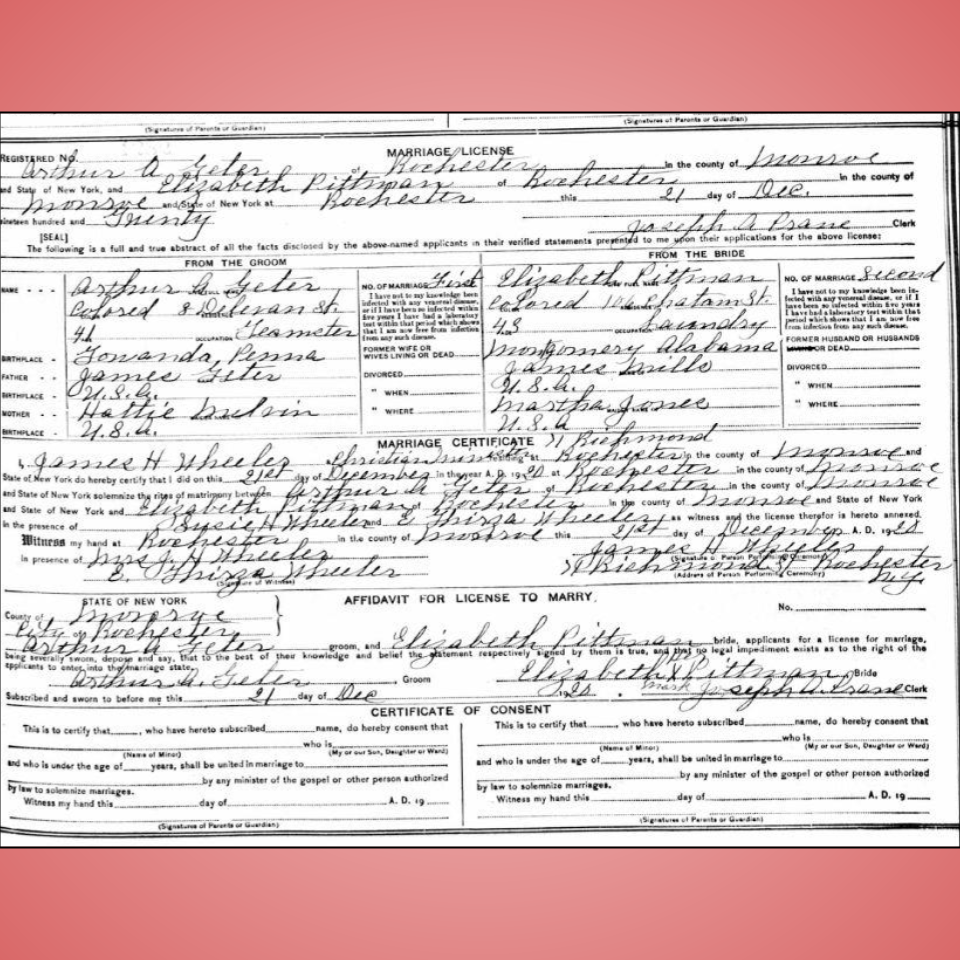 (Signatures of Parents or Guardian) (Signatures of Parents or Guardian)
MARRIAGE LICENSE
REGISTERED No.
Arthur A Geter of Rochester in the county of Monroe
and State of New York, and Elizabeth Pittman of Rochester in the county of
Monroe and State of New York at Rochester this 21 day of Dec.
nineteen hundred and Twenty
[SEAL] Joseph A Crane Clerk
The following is a full and true abstract of all the facts disclosed by the above-named applicants in their verified statements presented to me upon their applications for the above license:
FROM THE GROOM FROM THE BRIDE
NAME Arthur A Geter NO. OF MARRIAGE First Elizabeth Pittman NO. OF MARRIAGE Second
Colored 8 Delevan St. Colored Chatam St.
I have not to my knowledge been infected with any venereal disease, or if I have been so infected within five years I have had a laboratory test within that period which shows that I am now free from infection from any such disease.
I have not to my knowledge been infected with any venereal disease, or if I have been so infected within five years I have had a laboratory test within that period which shows that I am now free from infection from any such disease.
41 OCCUPATION Teamster 43 OCCUPATION Laundry
BIRTHPLACE Towanda, Penna FORMER WIFE OR WIVES LIVING OR DEAD Montgomery Alabama FORMER HUSBAND OR HUSBANDS LIVING OR DEAD.
FATHER James Geter DIVORCED James Mills DIVORCED
BIRTHPLACE U.S.A. " WHEN U.S.A. " WHEN
MOTHER Hattie Melvin " WHERE Martha Jones " WHERE
BIRTHPLACE U.S.A. U.S.A
MARRIAGE CERTIFICATE Richmond
I, James H Wheeler Christian Minister residing at Rochester in the county of Monroe and
State of New York do hereby certify that I did on this 21st day of December in the year A. D. 1920 at Rochester in the county of Monroe
and State of New York solemnize the rites of matrimony between Arthur A Geter of Rochester in the county of Monroe
and State of New York and Elizabeth Pittman of Rochester in the county of Monroe and State of New York
in the presence of Susie H Wheeler and E Thirza Wheeler as witness and the license therefor is hereto annexed.
Witness my hand at Rochester in the county of Monroe this 21st day of December A. D. 1920
In presence of Mrs J. H Wheeler James H Wheeler
(Signature of Person Performing Ceremony)
E. Thirza Wheeler Richmond St Rochester N.Y.
(Signature of Witness) (Address of Person Performing Ceremony)
STATE OF NEW YORK AFFIDAVIT FOR LICENSE TO MARRY. No.
County of Monroe
City of Rochester
Arthur A Geter groom, and Elizabeth Pittman bride, applicants for a license for marriage,
being severally sworn, depose and say, that to the best of their knowledge and belief the statement respectively signed by them is true, and that no legal impediment exists as to the right of the
applicants to enter into the marriage state.
Arthur A. Geter Groom Elizabeth X Pittman Bride
her mark
Subscribed and sworn to before me this 21 day of Dec 1920. Joseph A. Crane Clerk
CERTIFICATE OF CONSENT
This is to certify that , who have hereto subscribed name, do hereby consent that
who is
(Name of Minor) (My or our Son, Daughter or Ward)
and who is under the age of years, shall be united in marriage to
by any minister of the gospel or other person authorized
by law to solemnize marriages.
Witness my hand this day of A. D. 19
(Signatures of Parents or Guardian)
This is to certify that , who have hereto subscribed name, do hereby consent that
who is
(Name of Minor) (My or our Son, Daughter or Ward)
and who is under the age of years, shall be united in marriage to
by any minister of the gospel or other person authorized
by law to solemnize marriages.
Witness my hand this day of A. D. 19
(Signatures of Parents or Guardian)